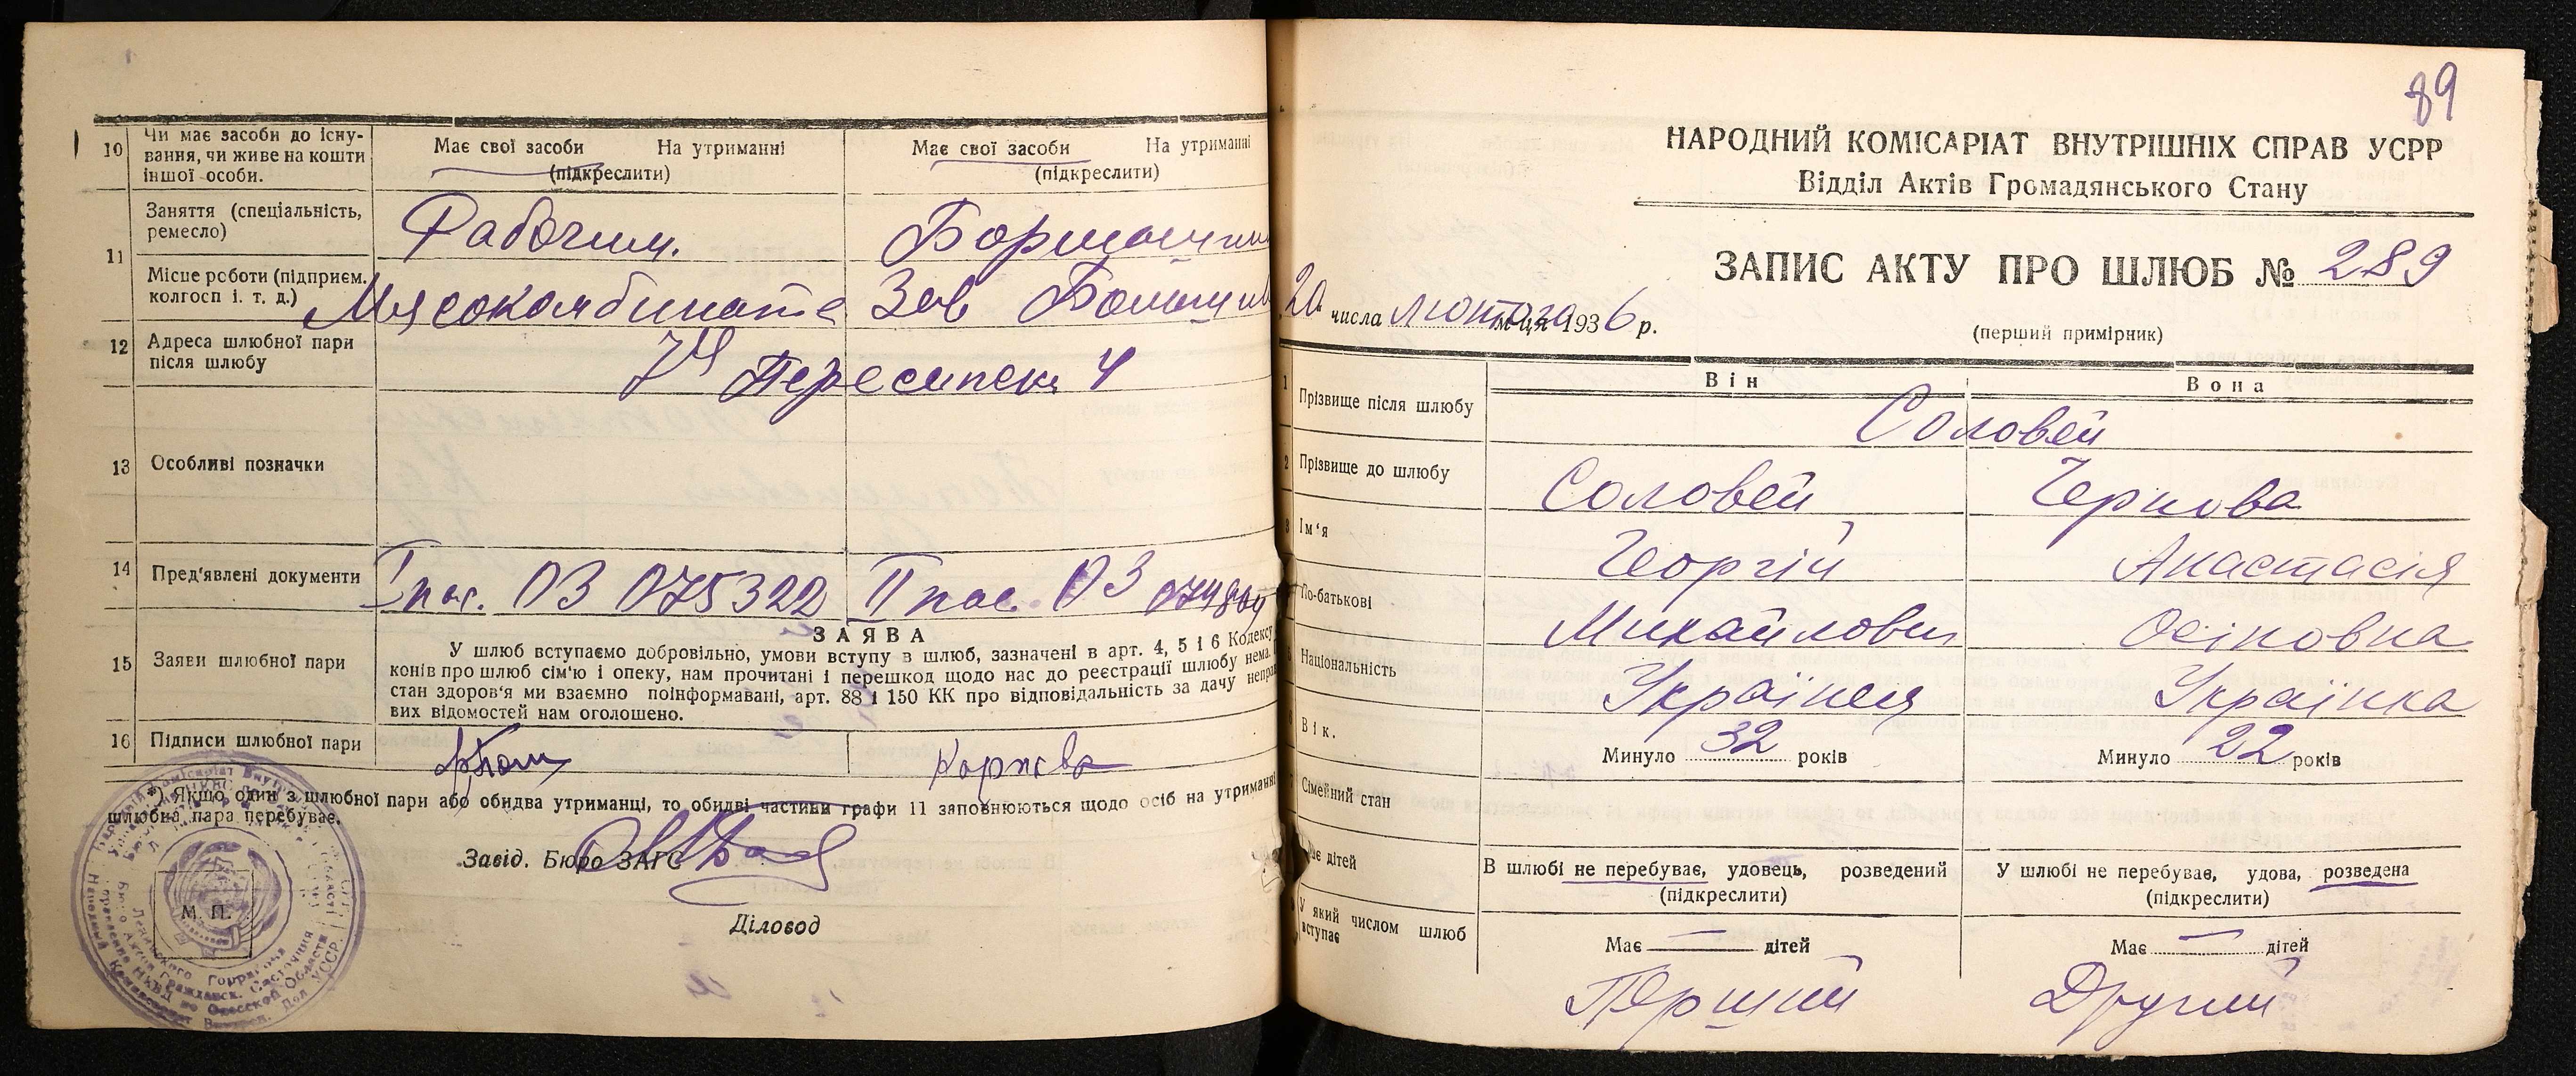 10 Чи має засоби до існу-
вання, чи живе на кошти
іншої особи.
Має свої засоби На утриманні
(підкреслити)
Має свої засоби На утриманні
(підкреслити)
11 Заняття (спеціальність,
ремесло)
Рабочим.
Місце роботи (підприєм.
колгосп і. т. д.)
Мясокомбината
Зав
12 Адреса шлюбної пари
після шлюбу
Пересипск 4
13 Особливі позначки
14 Пред'явлені документи
I пас. ОЗ 075322 II пас. ОЗ
15 Заяви шлюбної пари
ЗАЯВА
У шлюб вступаємо добровільно, умови вступу в шлюб, зазначені в арт. 4, 5 і 6 Кодексу
конів про шлюб сім'ю і опеку, нам прочитані і перешкод щодо нас до реєстрації шлюбу нема.
стан здоров'я ми взаємно поінформавані, арт. 88 і 150 КК про відповідальність за дачу неправ
вих відомостей нам оголошено.
16 Підписи шлюбної пари
*) Якщо один з шлюбної пари або обидва утриманці, то обидві частини графи 11 заповнюються щодо осіб на утриманні
шлюбна пара перебуває.
Завід. Бюро ЗАГС
М. П.
Діловод
89
НАРОДНИЙ КОМІСАРІАТ ВНУТРІШНІХ СПРАВ УСРР
Відділ Актів Громадянського Стану
ЗАПИС АКТУ ПРО ШЛЮБ № 289
20 числа лютого м-ця 1936 р.
(перший примірник)
Він Вона
1 Прізвище після шлюбу
Соловей
2 Прізвище до шлюбу
Соловей Чернова
3 Ім'я
Георгій Анастасія
По-батькові
Михайлович Осіповна
Національність
Українец Українка
Вік.
Минуло 32 років Минуло 22 років
Сімейний стан
В шлюбі не перебуває, удовець, розведений
(підкреслити)
У шлюбі не перебуває, удова, розведена
(підкреслити)
Має дітей
Має — дітей Має — дітей
У який числом шлюб
вступає
Перший Другий